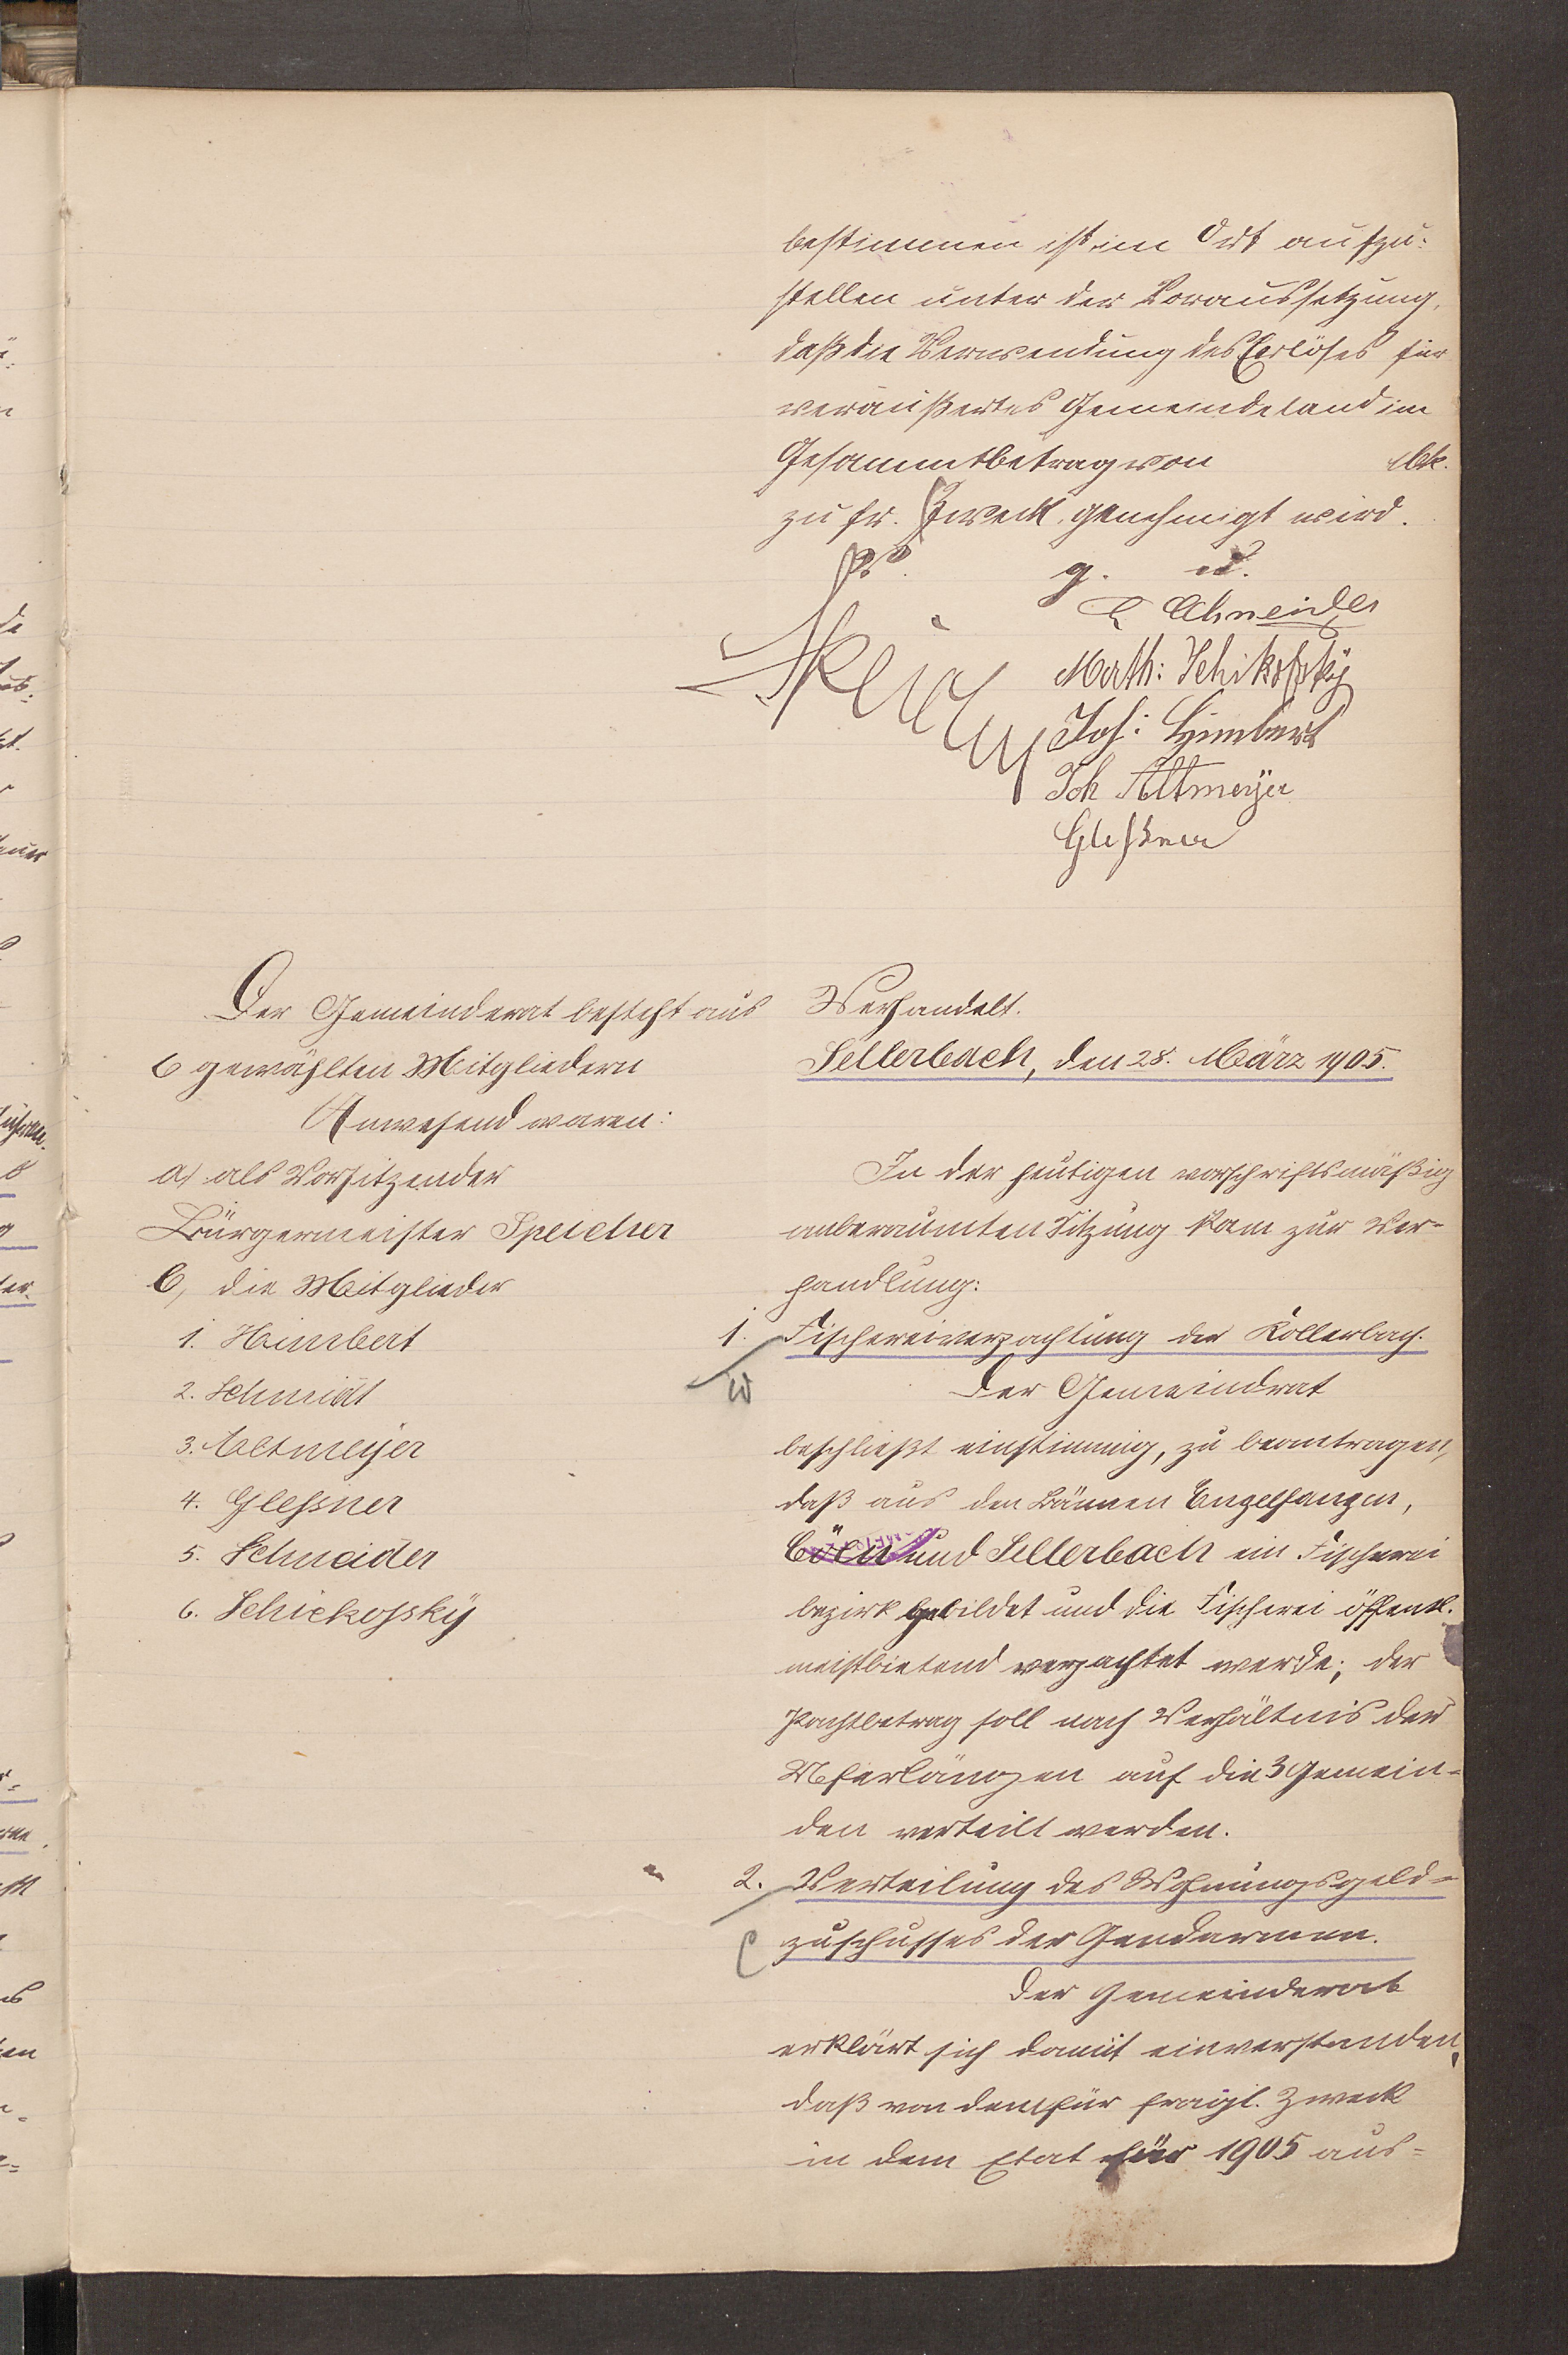 bestimmen ist im Ort aufzu-
stellen unter der Voraussetzung,
daß die Verwendung des Erlöses für
veräußertes Gemeindeland im
Gesammtbetrag von Mk.
zu fr. Zweck genehmigt wird.
g. u.
Schneider
Math: Schikofsky
Joh: Himbert
Joh Altmeÿer
Gleßner
Der Gemeinderat besteht aus
6 gewählten Mitgliedern
Anwesend waren:
a) als Vorsitzender
Bürgermeister Speicher
b, die Mitglieder
1. Himbert
2. Schmidt
3. Altmeÿer
4. Gleßner
5. Schneider
6. Schickofskÿ
Verhandelt.
Sellerbach, den 28. März 1905.
In der heutigen vorschriftsmäßig
anberaumten Sitzung kam zur Ver-
handlung:
1. Fischereiverpachtung der Köllerbach.
Der Gemeindrat
beschließt einstimmig, zu beantragen,
daß aus den Bännen Engelfangen,
Cölln und Sellerbach ein Fischerei
bezirk gebildet und die Fischerei öffentl.
meistbietend verpachtet werde; der
Pachtbetrag soll nach Verhältnis der
Uferlängen auf die 3 Gemein-
den verteilt werden.
2. Verteilung des Wohnungsgeld-
zuschusses der Gendarmen.
Der Gemeinderat
erklärt sich damit einverstanden,
daß von dem für fragl. Zweck
in dem Etat für 1905 aus-